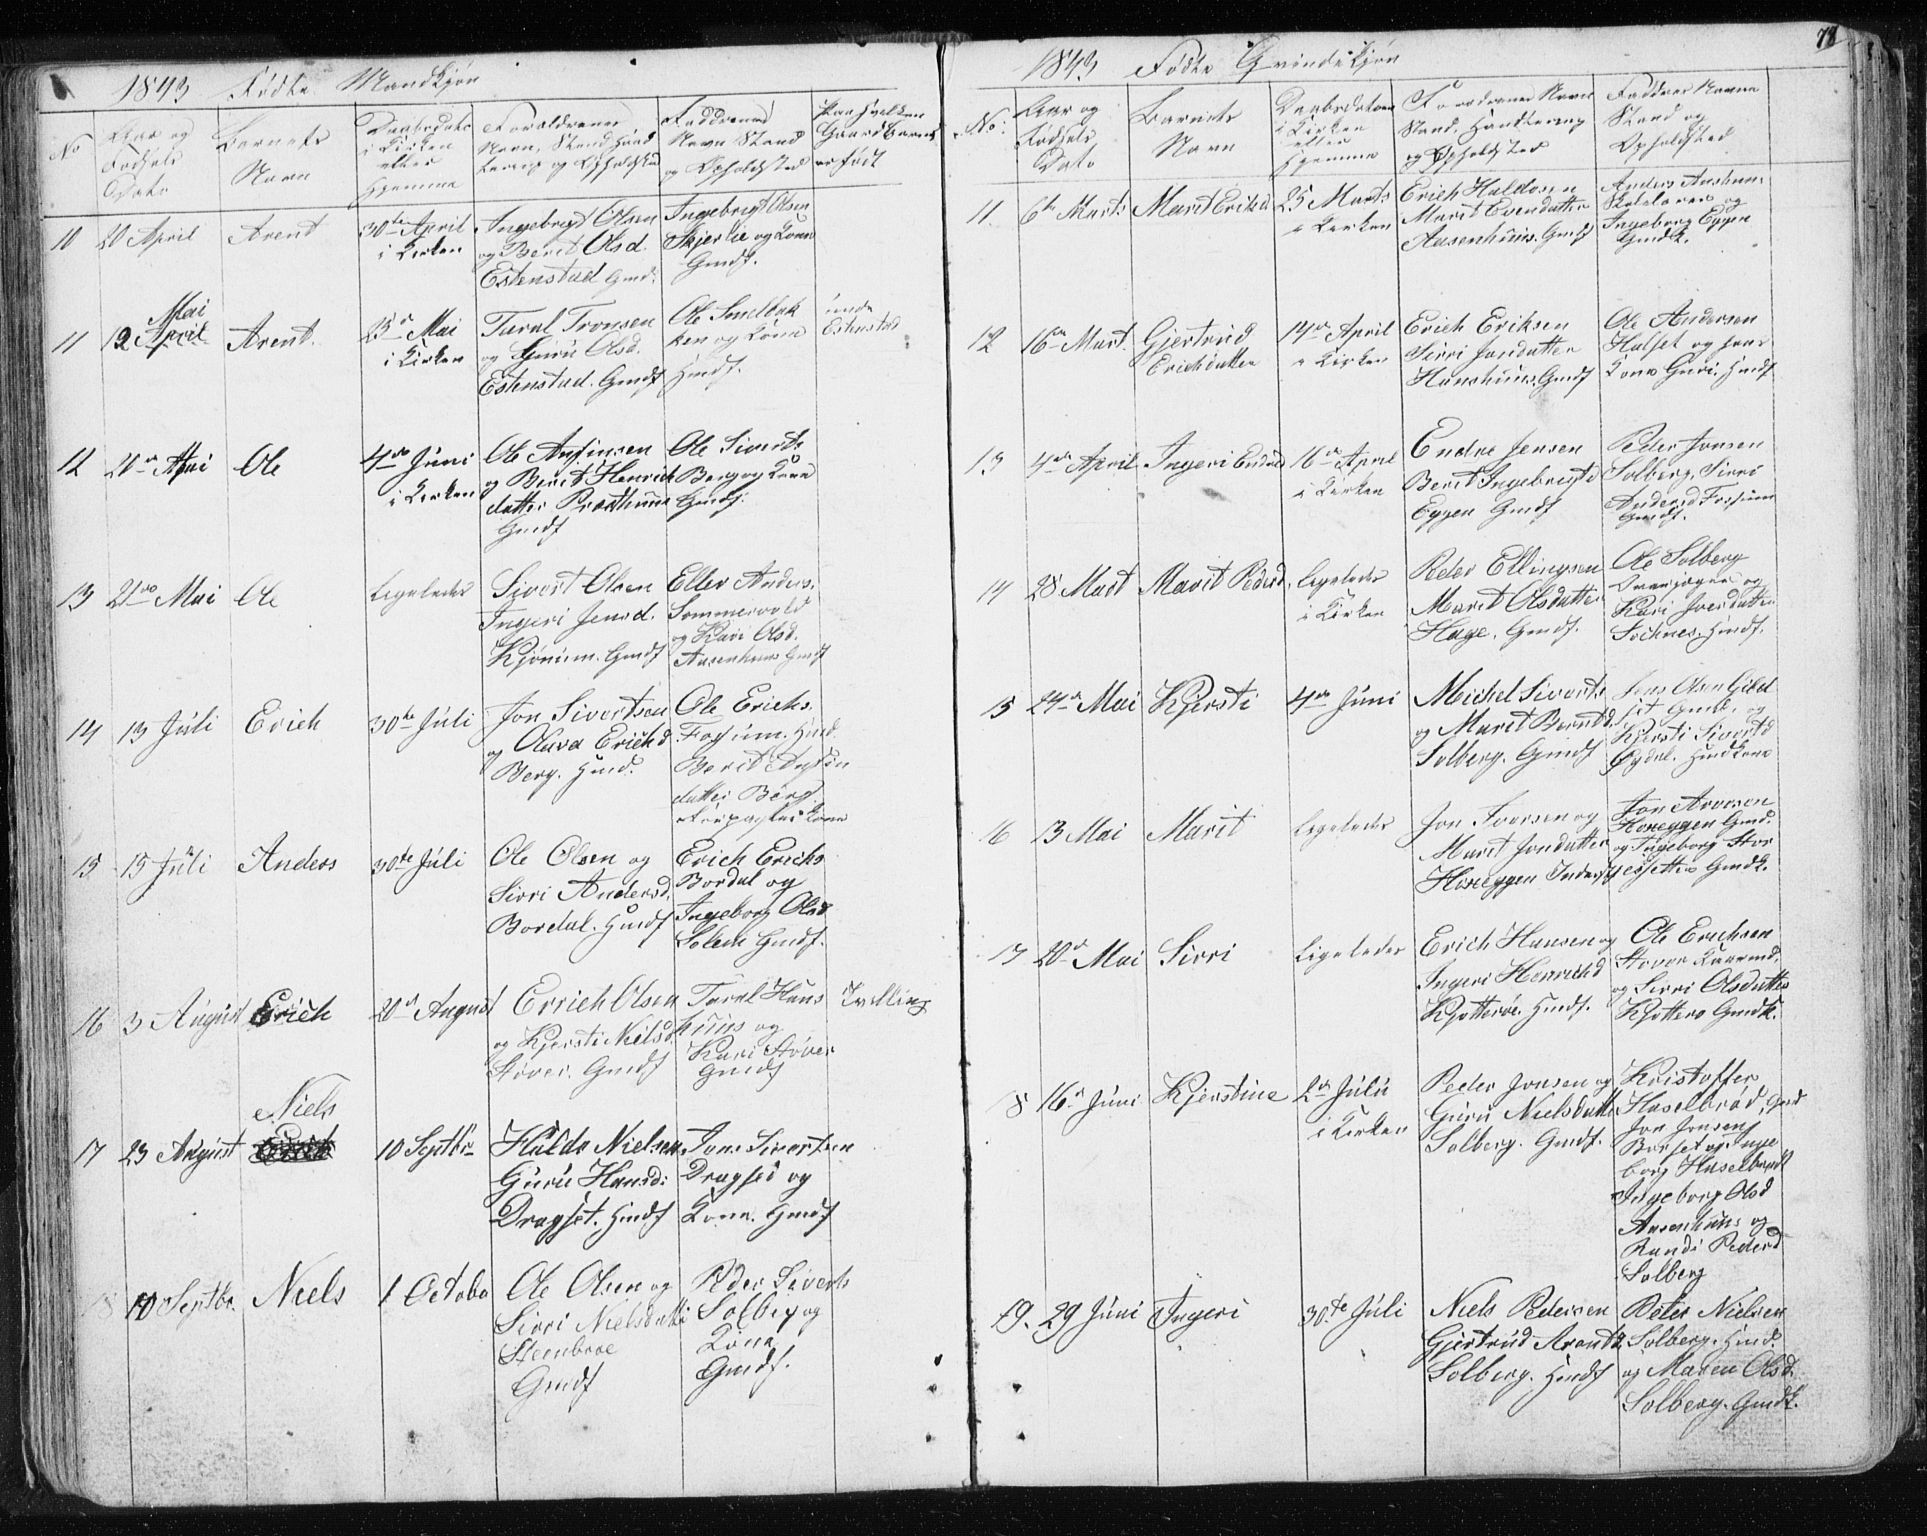 1843 Fødte Mandkjøn
No
Aar og
Fødsels
Dato
Barnets
Navn
Daabsdato
i Kirken
eller
Hjemme
Forældrenes
Navn, Stand Haand
tering og Opholdsted
Faddrenes
Navn Stand
og Opholdsted
Paa hvilken
Gaard Barnet
er født
10 20 April Arent
30te April
i Kirken
Ingebrigt Olsen
og Berit Olsd.
Estenstad Gmd:
Ingebrigt Olsen
Skjerlie og Kone
Gmdf.
11
Mai
12 April
Arent.
25de Mai
i Kirken
Taral Tronsen
og Guru Olsd.
Estenstad. Gmdf
Ole Smelbak
ken og Kone
Hmdf.
unde
Estenstad
12 20de Mai Ole
4de Juni
i Kirken
Ole Anfinsen
og Berit Henrich
datter Præsthuus
Gmdf
Ole Siverts
Berg og Kone
Gmdf.
13 21de Mai Ole Ligeledes
Sivert Olsen
Ingeri Jensd.
Kjønum. Gmdf
Eller Anders.
Sommervold
og Kari Olsd.
Aasenhuus Gmdf
14 13 Juli Erich 30te Juli
Jon Sivertsen
og Olava Erichd
Berg. Hmd.
Ole Erichs.
Fossum. Hmd
Berit Anfin
datter Berg
Forpagter Kone
15 15 Juli Anders 30te Juli
Ole Olsen og
Sirri Andersd.
Bordal. Hmdf
Erich Erichs
Bordal og
Ingeborg Olsd
Solem Gmdf.
16 3 August Erich 20de August
Errich Olsen
og Kjersti Nielsd.
Støver. Gmdf
Taral Hans
huus og
Kari Støver
Gmdf
Tvilling
17 23 August
Niels
10 Septbr
Haldo Nielsen
Guru Hansd:
Dragset. Hmdf
Jon Sivertsen
Dragset og
Kone. Gmdf
18 10 Septbr. Niels 1 Octobe
Ole Olsen og
Sirri Nielsdatte
Stenbroe
Gmdf
Peder Siverts
Solberg og
Kone
Gmdf.
78
1843 Fødte Qvindekjøn
No:
Aar og
Fødsels
Dato
Barnets
Navn
Daabsdatoen
i Kirken
eller
Hjemme
Forældrenes Navn
Stand. Handtering
og Opholdsted
Faddres Navne
Stand og
Opholdsted
11. 6te Marts Marit Eriksd
25 Marts
i Kirken
Erich Haldosen
Marit Evendatter
Aasenhuus. Gmdf
Anders
Skolelærer og
Ingeborg Eggen
Gmdk.
12 16de Mart.
Gjertrud
Erichdatter
14de April
i Kirken
Erich Eriksen
Sirri Jondatter
Hanshuus. Gmdf
Ole Andersen
Halset og hans
Kone Guri. Hmdf
13 4de April Ingeri Endred
16de April
i Kirken
Endre Jensen
Berit Ingebrigtd
Eggen Gmdf
Peder Jonsen
Solberg, Sirri
Andersd Fossum
Gmdf.
14 28 Mart Marit Pedersd.
Ligeledes
i Kirken
Peder Ellingsen
Marit Olsdatter
Hage. Gmdf.
Ole Solberg
og
Kari Iverdatter
Sochnes. Hmdf.
15 24de Mai Kjersti 4de Juni
Michel Siverts
og Marit Berntsd
Solberg. Gmdf
Jens Olsen Gild
set Gmd. og
Kjersti Sivertsd
Øydal. Hmdkone
16 13 Mai Marit Ligeledes
Jon Iversen og
Marit Jondatter
Horeggen Inderst
Jon Arvesen
Horeggen Gmd.
og Ingeborg Stor
jessetter Gmdk.
17 20de Mai Sirri Ligeledes
Erich Hansen og
Ingeri Henrichd
Kjøtterøe. Hmdf.
Ole Erichsen
Støver
og Sirri Olsdatter
Kjøtterø Gmdk.
8 16de Juni Kjerstine
2de Juli
i Kirken
Peder Jonsen og
Guru Nielsdatte
Solberg. Gmdf.
Kristoffer
Haselbrød, Gmd
Jon Jonsen
Borset og Inge
borg Haselbrødt
Ingeborg Olsd
Aasenhuus og
Randi Pedersd
Solberg
19. 29 Juni Ingeri 30te Juli
Niels Pedersen
Gjertrud Arentd.
Solberg. Hmdf
Peter Nielsen
Solberg. Hmd.
og Maren Olsd.
Solberg. Gmdk.